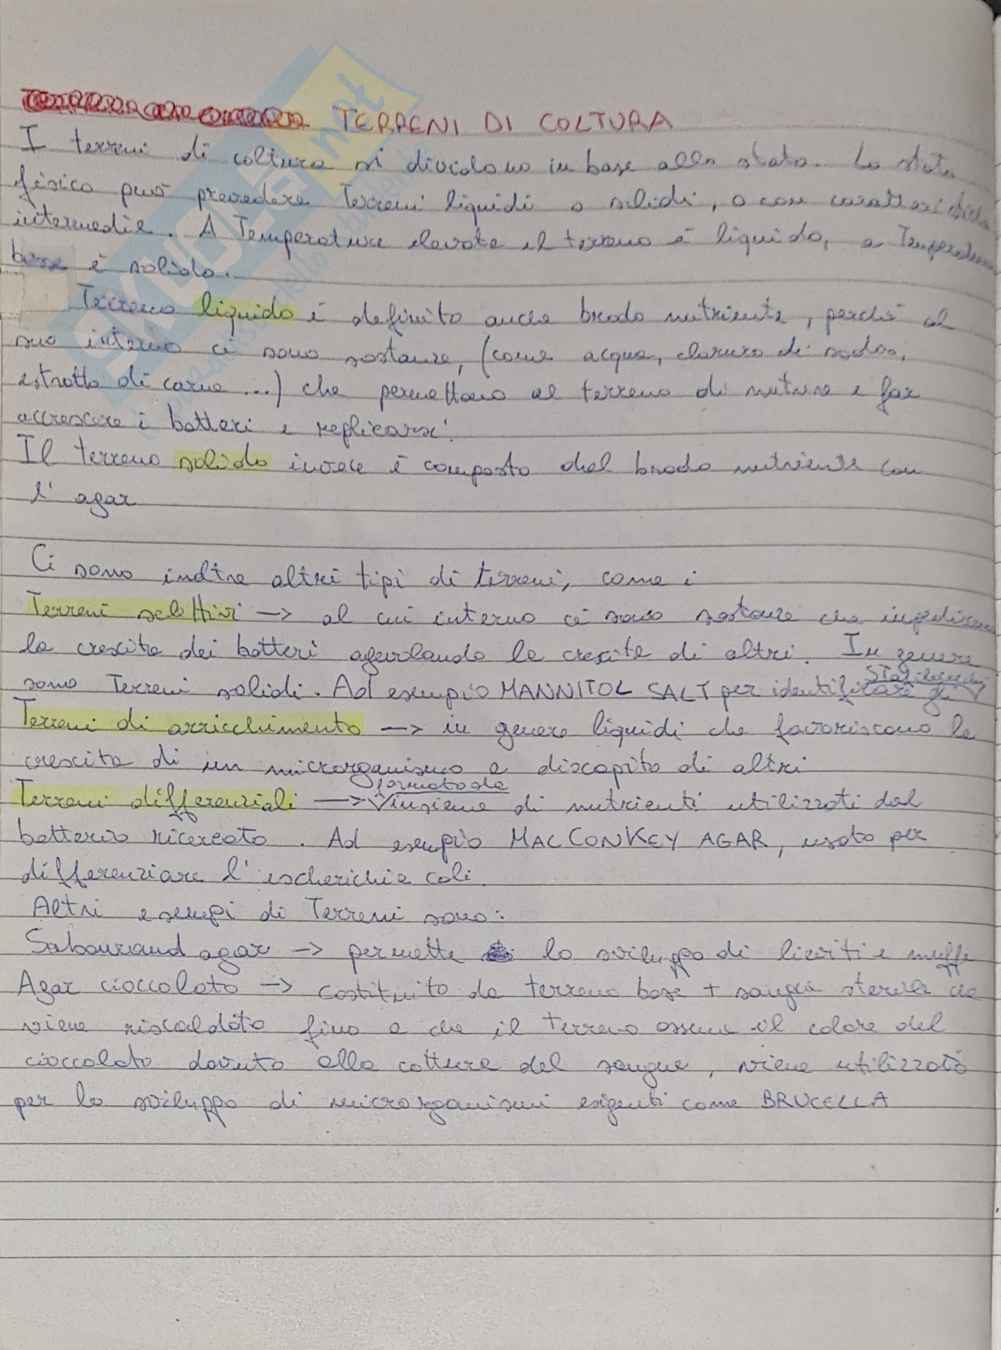 TERRENI DI COLTURA
I terreni di coltura si dividono in base allo stato. Lo stato
fisico può prevedere Terreni liquidi o solidi, o con caratteristiche
intermedie. A Temperature elevate il terreno è liquido, a Temperature
basse è solido.
Terreno liquido è definito anche brodo nutriente, perché al
suo interno ci sono sostanze, (come acqua, cloruro di sodio,
estratto di carne ...) che permettono al terreno di nutrire e far
accrescere i batteri e replicarsi.
Il terreno solido invece è composto dal brodo nutriente con
l'agar
Ci sono inoltre altri tipi di terreni, come i
Terreni selettivi → al cui interno ci sono sostanze che impediscono
la crescita dei batteri agevolando la crescita di altri. In genere
sono Terreni solidi. Ad esempio MANNITOL SALT per identificare gli
Terreni di arricchimento → in genere liquidi che favoriscono la
crescita di un microrganismo a discapito di altri
formato da
Terreni differenziali → insieme di nutrienti utilizzati dal
batterio ricercato. Ad esempio MAC CONKEY AGAR, usato per
differenziare l'escherichia coli.
Altri esempi di Terreni sono:
Sabouraud agar → permette lo sviluppo di lieviti e muffe
Agar cioccolato → costituito da terreno base + sangue sterile che
viene riscaldato fino a che il terreno assume il colore del
cioccolato dovuto alla cottura del sangue, viene utilizzato
per lo sviluppo di microrganismi esigenti come BRUCELLA